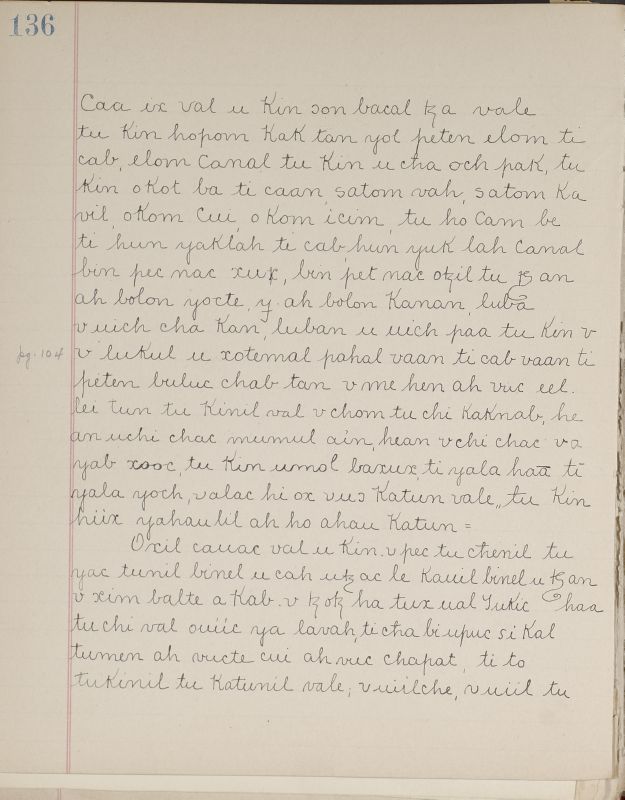 136
Caa ix val u Kin son bacal ꜩa vale
tu Kin hopom Kak tan yol peten elom ti
cab, elom Canal tu Kin u cha och pak, tu
Kin oKot ba ti caan, satom vah, satom Ka
vil, oKom Cui, oKom icim, tu ho Cam be
ti hun yaklah ti cab, hun yuk lah Canal
bin pec nac xux, bin pet nac oꜩil tu ꜩan
ah bolon yocte, y. ah bolon Kanan, luba
v uich cha Kan, luban u uich paa tu Kin v
pg. 104
v luKul u xotemal pahal vaan ti cab vaan ti
peten buluc chab tan v me hen ah vuc eel.
lei tun tu Kinil val v chom tu chi KaKnab, he
an uchi chac mumul ain, hean v chi chac va
yab xooc, tu Kin umol baxux, ti yala haa ti
yala yoch, valac hi ox vuɔ Katun vale,, tu Kin
hiix yahaulil ah ho ahau Katun =
Oxil cauac val u Kin. v pec tu chenil tu
yac tunil binel u cah uꜩac le Kauil binel u ꜩan
v xim balte aKab. v ꜩoꜩ ha tux ual YuKic haa
tu chi val ouiic ya lavah, ti cha bi upuc siKal
tumen ah vucte cui ah vuc chapat, ti to
tuKinil tu Katunil vale; v uiilche, v uiil tu